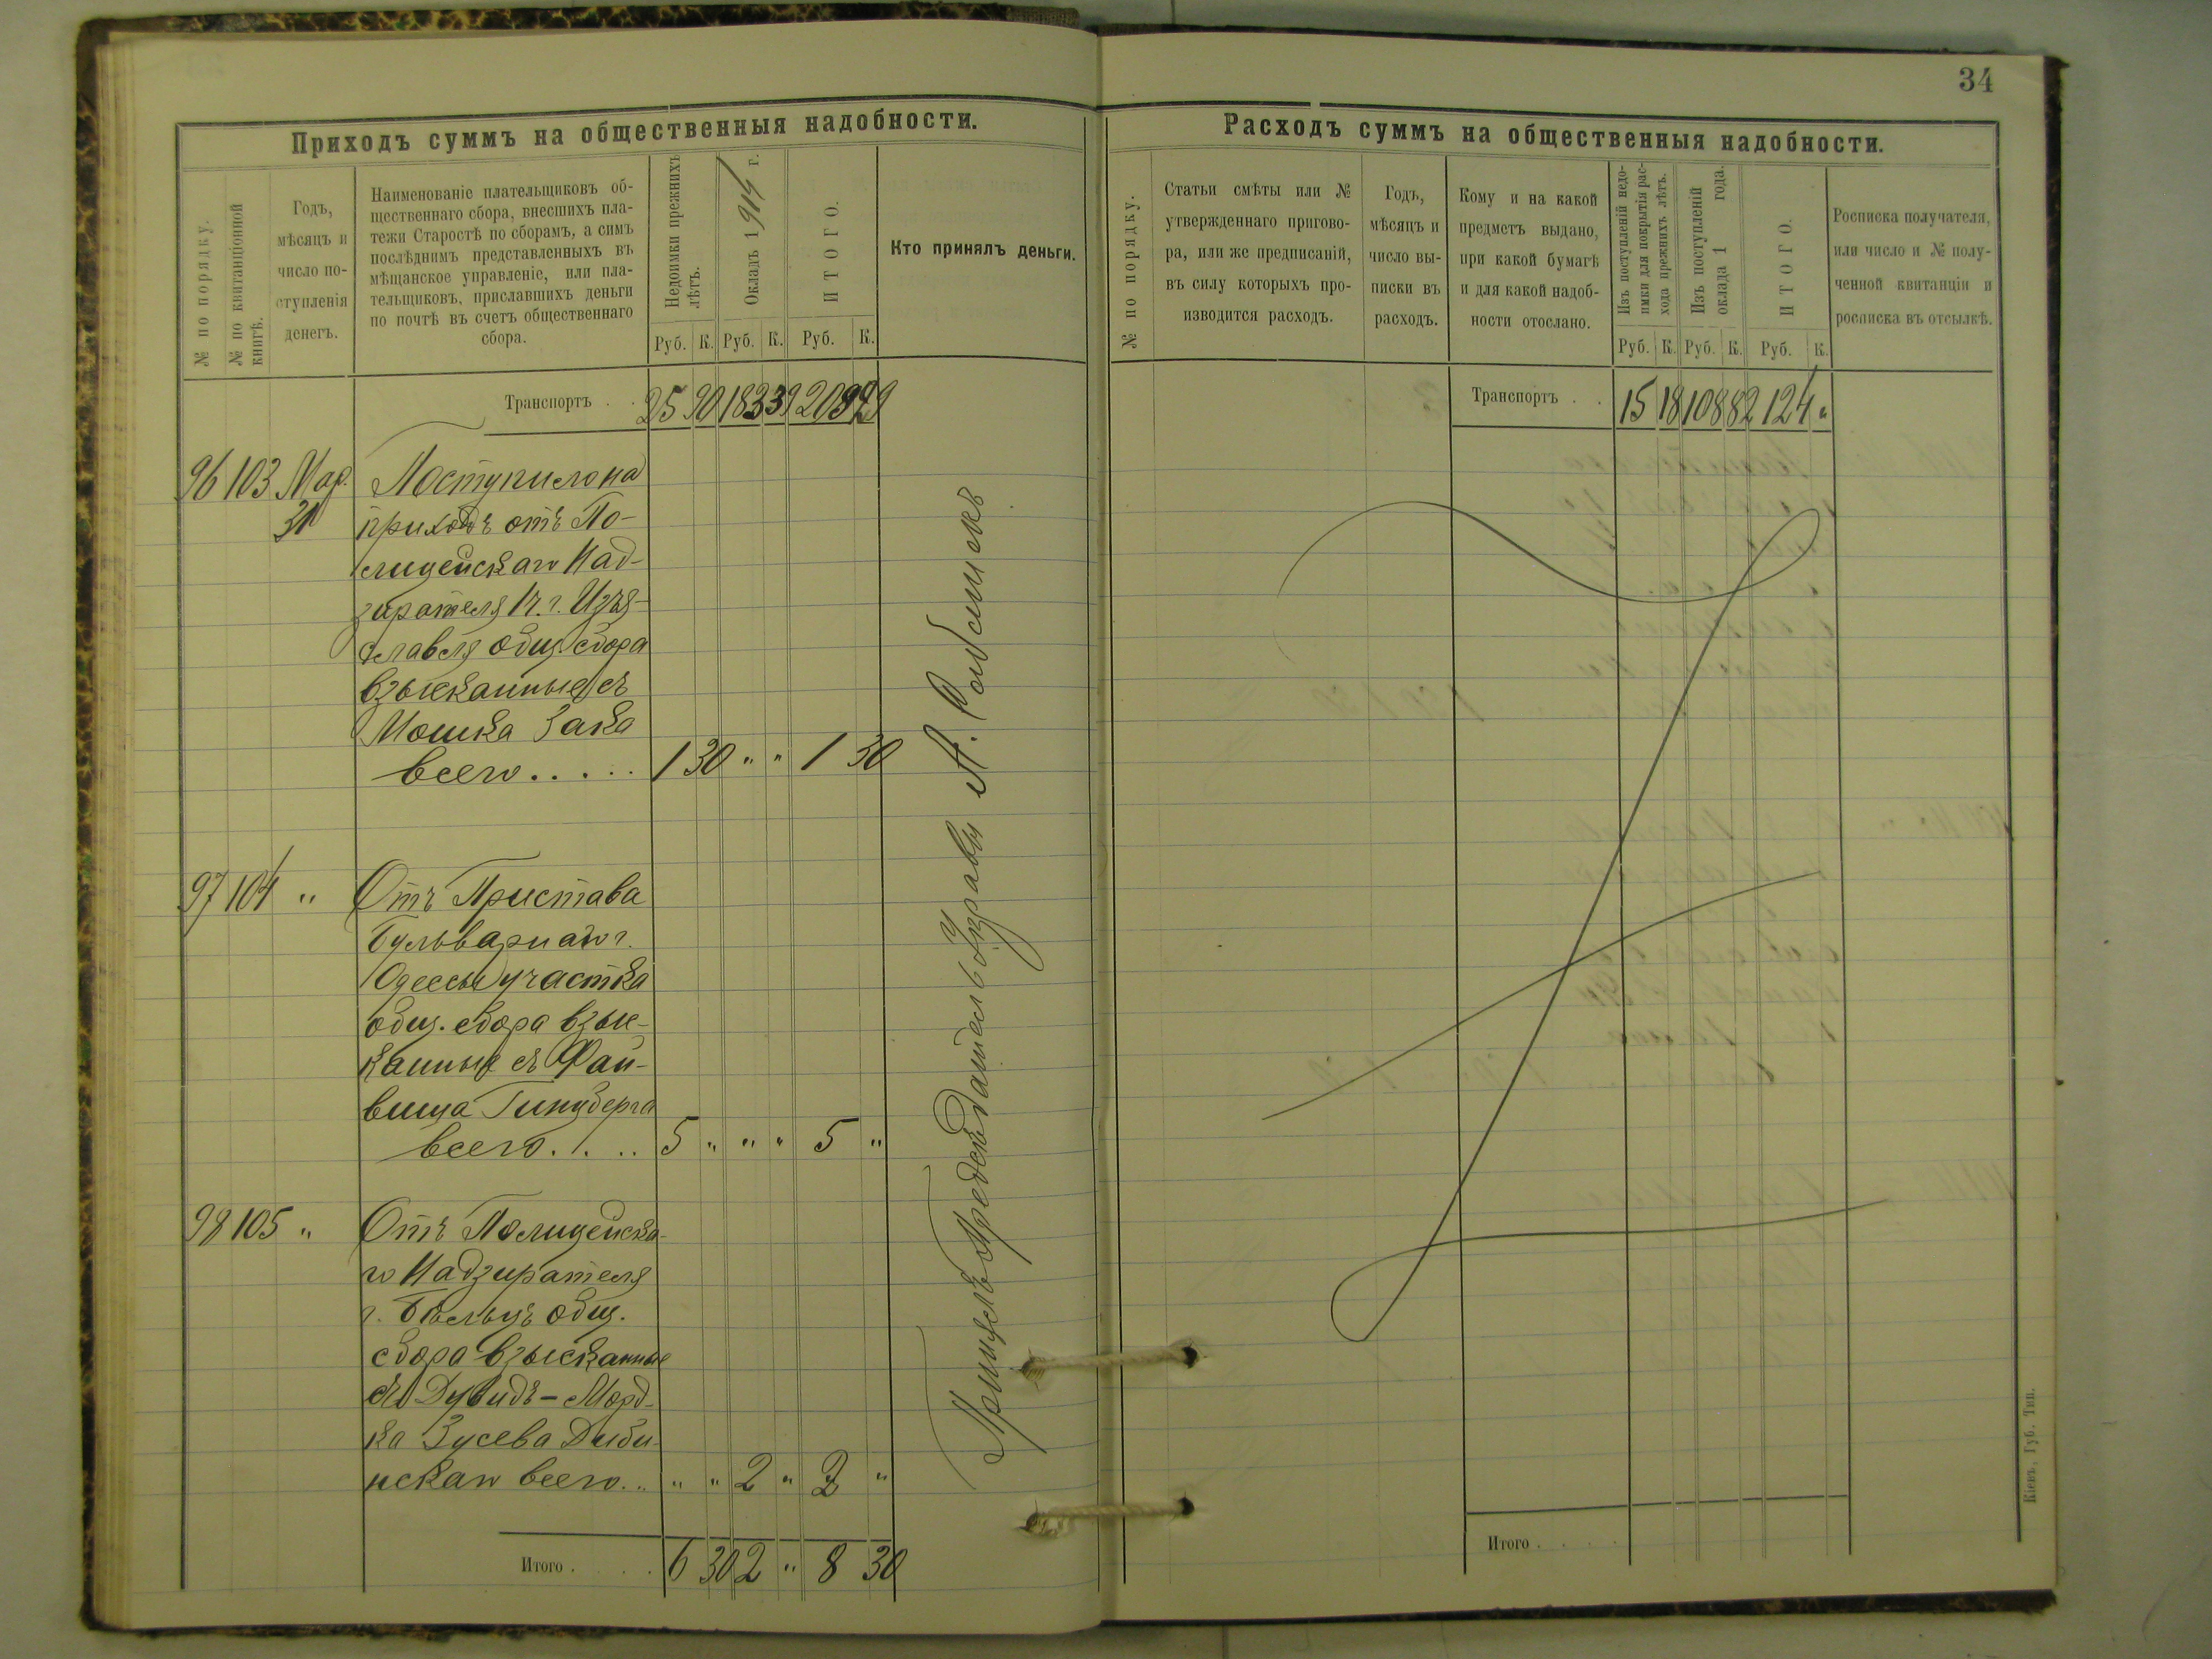 34
Приходъ суммъ на общественныя надобности.
№ по порядку.
№ по квитанціонной
книгѣ.
Годъ,
мѣсяцъ и
число по-
ступленія
денегъ.
Наименованіе плательщиковъ об-
щественнаго сбора, внесшихъ пла-
тежи Старостѣ по сборамъ, а симъ
послѣднимъ представленныхъ въ
мѣщанское управленіе, или пла-
тельщиковъ, приславшихъ деньги
по почтѣ въ счетъ общественнаго
сбора.
Недоимки прежнихъ
лѣтъ.
Окладъ 1914 г.
ИТОГО.
Руб. К. Руб. К. Руб. К.
Кто принялъ деньги.
Транспортъ . . 25 90 183 39 209 29
96 103 Мар. Поступило на
31 приходъ отъ По-
лицейскаго Над-
зирателя г. Изя-
славля общ. сбора
взысканные съ
Мошка Зака
всего . . . . . 1 30 " " 1 30
97 104 " Отъ Пристава
Бульварнаго г.
Одессы участка
общ. сбора взыс-
канные съ Фай-
виша Гинзберга
всего . . . . 5 " " " 5 "
98 105 " Отъ Полицейска-
го Надзирателя
г. Бѣльцъ общ.
сбора взысканные
съ Дувидъ-Морд-
ка Зусева Диби-
нскаго всего . . " " 2 " 2 "
Итого . . . . 6 30 2 " 8 30
Принялъ Предсѣдатель Управы А.
Расходъ суммъ на общественныя надобности.
№ по порядку.
Статьи смѣты или №
утвержденнаго пригово-
ра, или же предписаній,
въ силу которыхъ про-
изводится расходъ.
Годъ,
мѣсяцъ и
число вы-
писки въ
расходъ.
Кому и на какой
предметъ выдано,
при какой бумагѣ
и для какой надоб-
ности отослано.
Изъ поступленій недо-
имки для покрытія рас-
хода прежнихъ лѣтъ.
Изъ поступленій
оклада 1 года.
ИТОГО.
Руб. К. Руб. К. Руб. К.
Росписка получателя,
или число и № полу-
ченной квитанціи и
росписка въ отсылкѣ.
Транспортъ . . 15 18 108 82 124 "
Итого . . . .
Кіевъ, Губ. Тип.